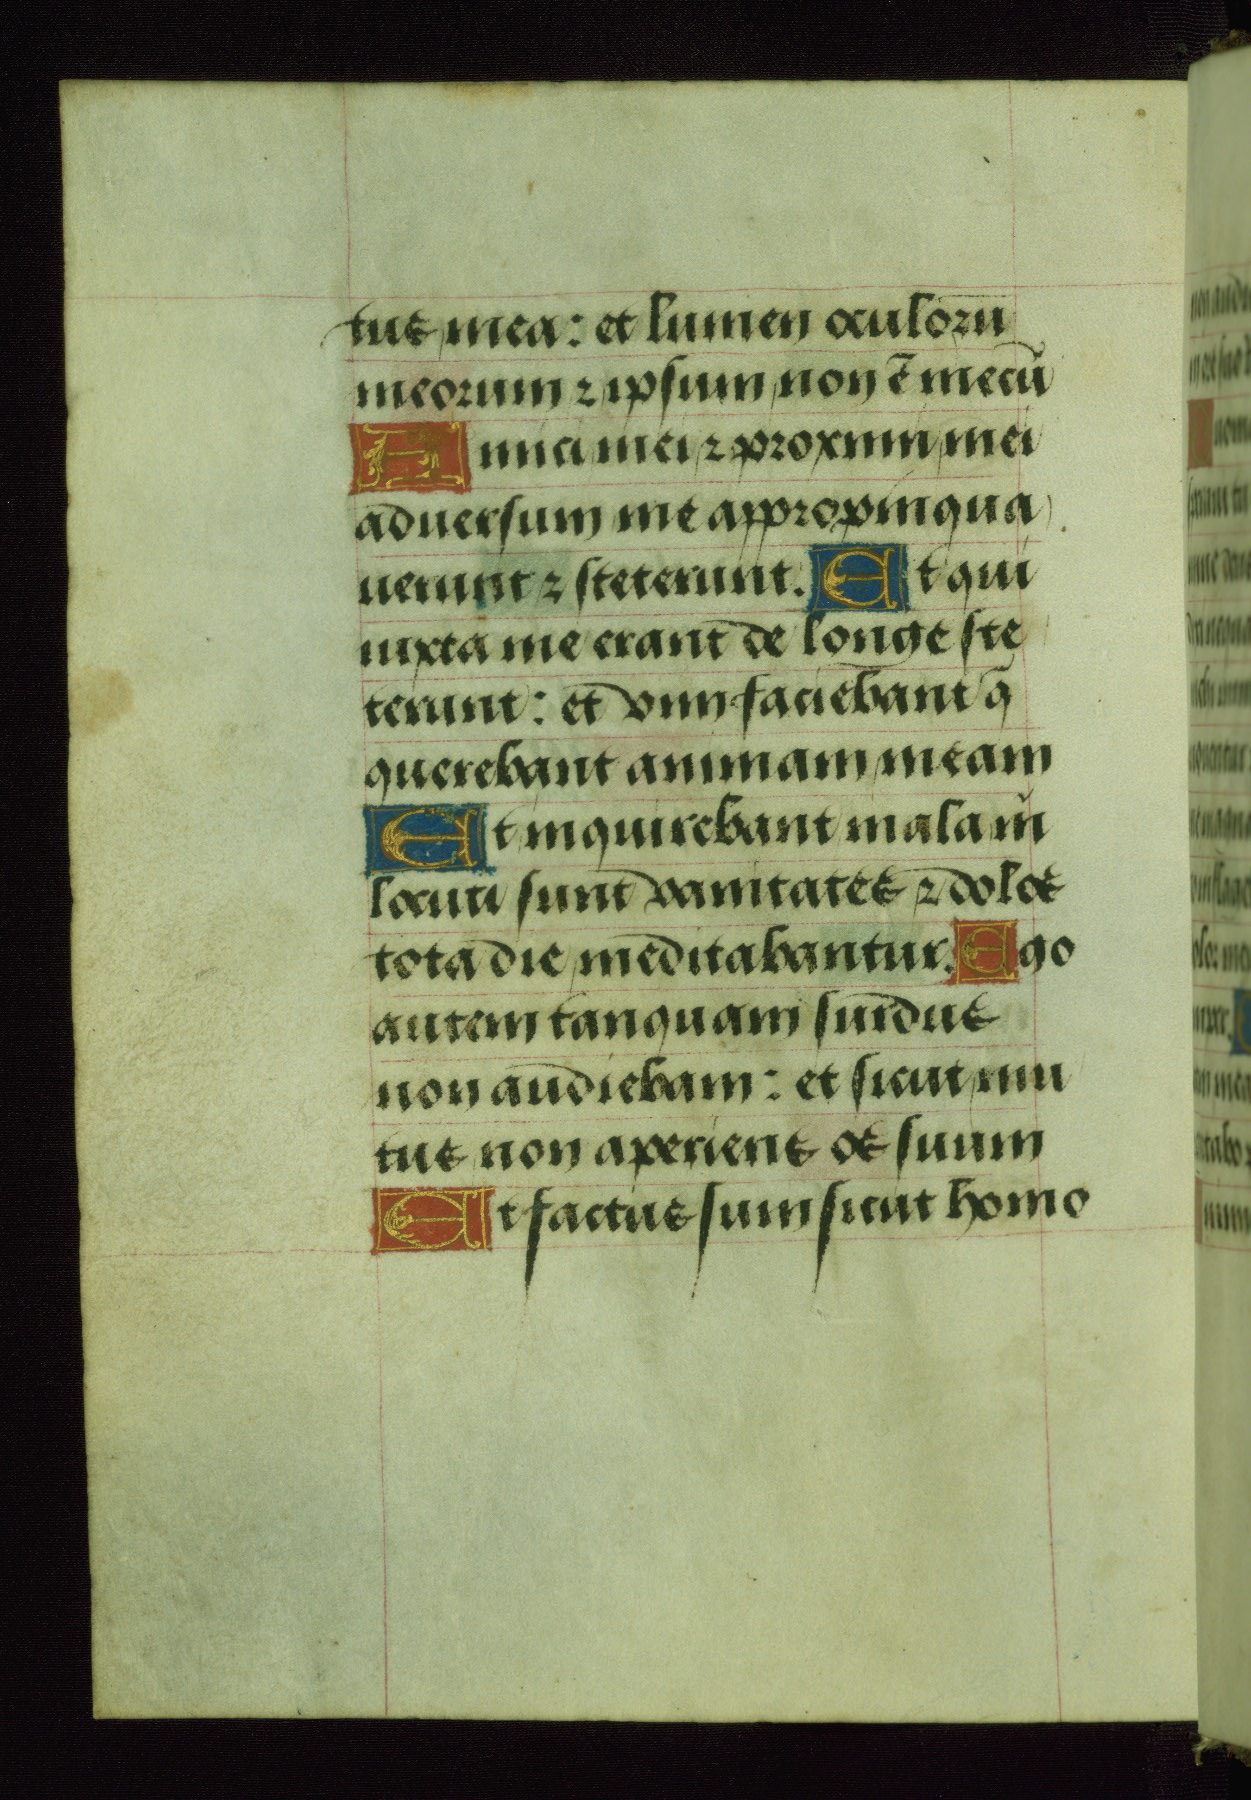 tus mea: et lumen oculorū
meorum ⁊ ipsum non ē mecū
Amici mei ⁊ proximi mei
aduersum me appropinqua
uerunt ⁊ steterunt. Et qui
iuxta me erant de longe ste
terunt: et vim faciebant q̄
querebant animam meam
Et inquirebant mala m̄
locuti sunt vanitates ⁊ dolos
tota die meditabantur. Ego
autem tanquam surdus
non audiebam: et sicut mu
tus non aperiens os suum
Et factus sum sicut homo